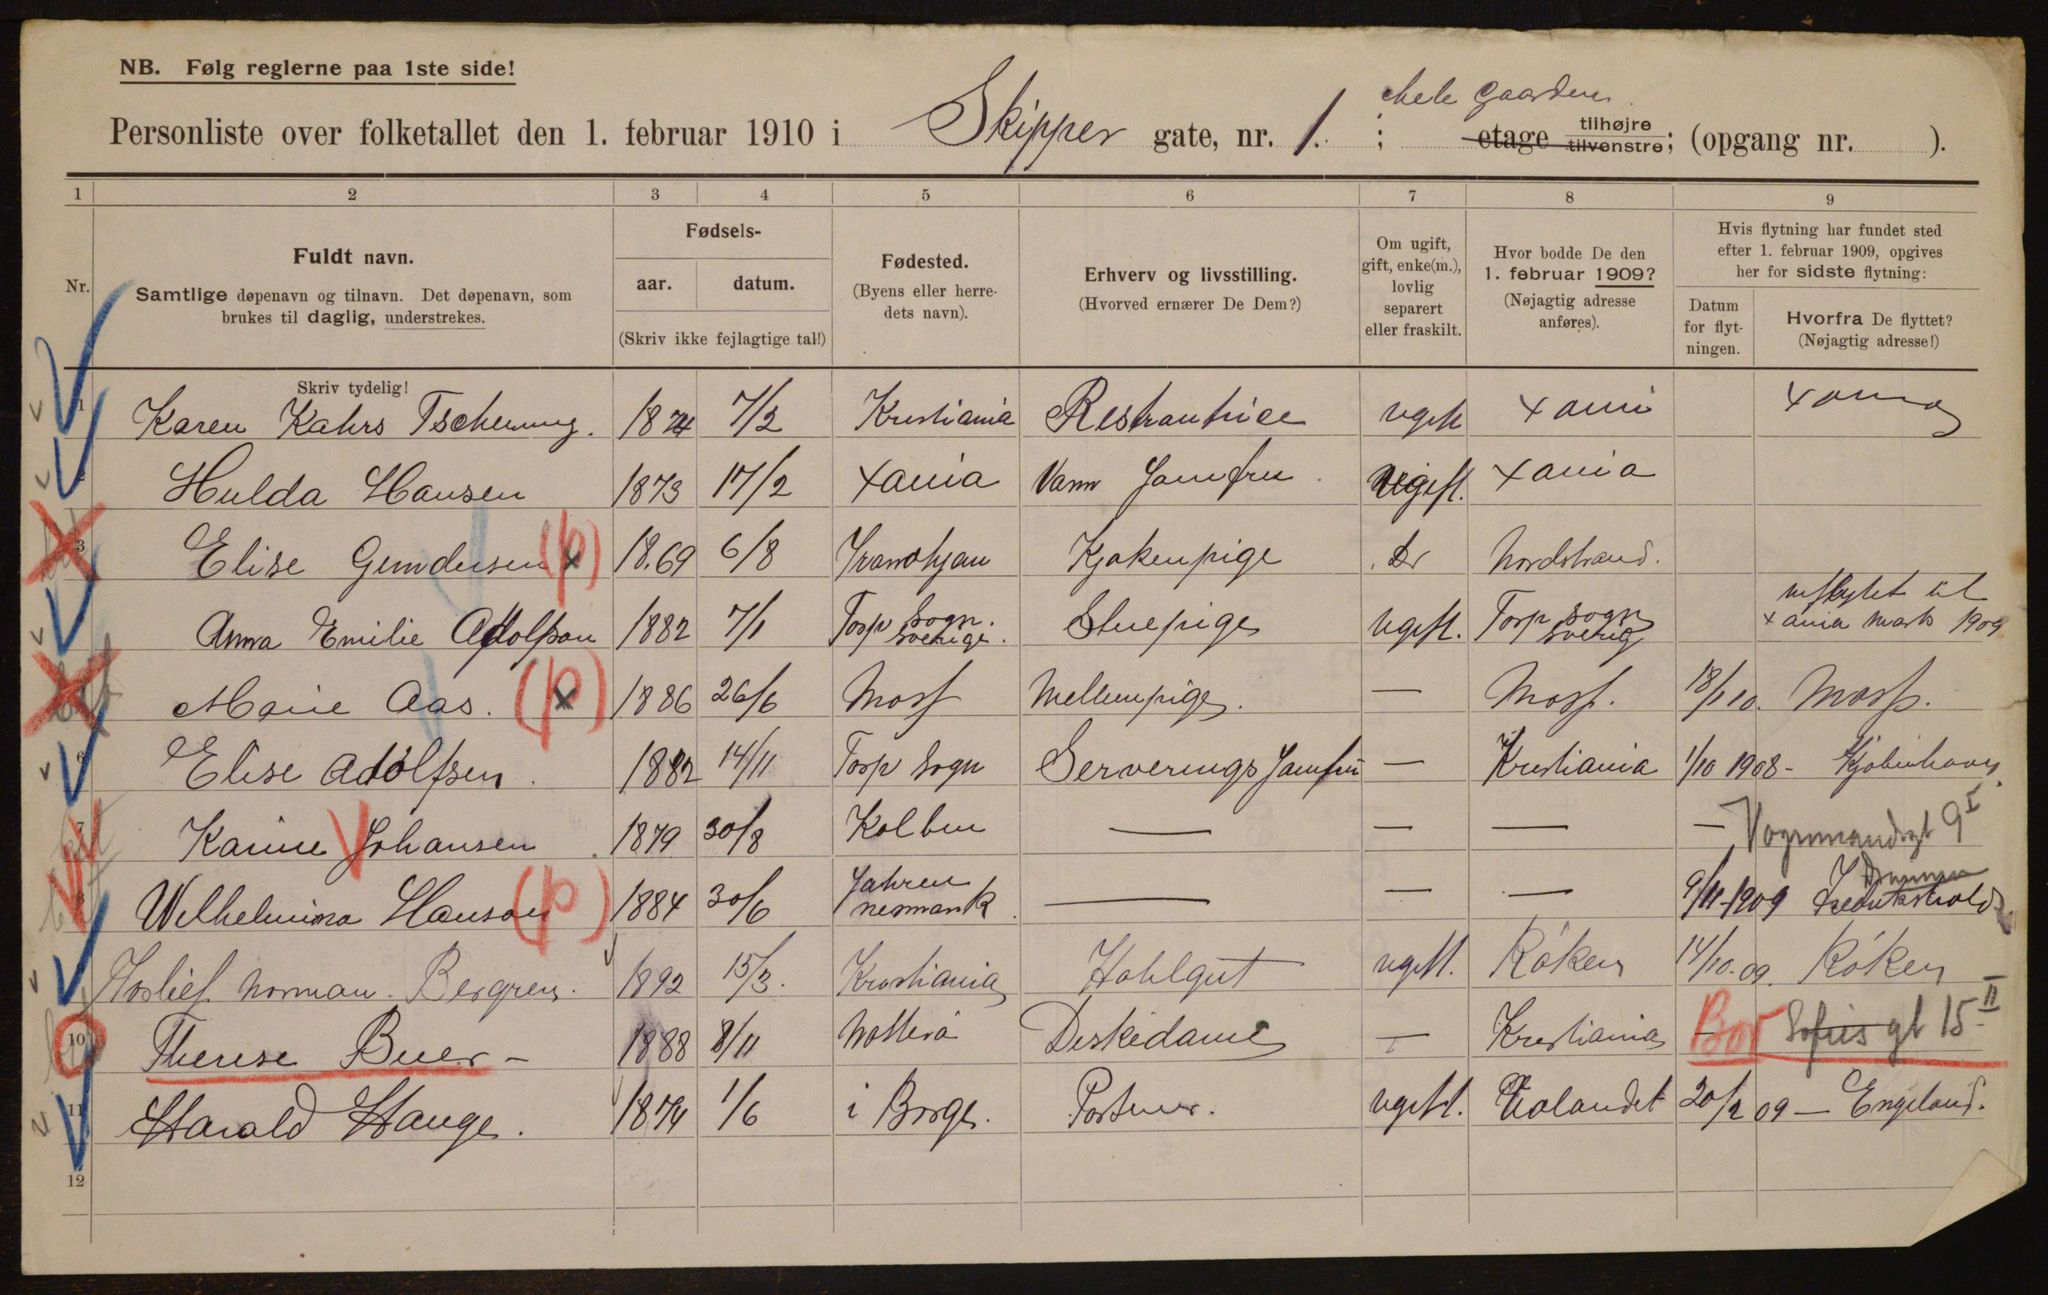 NB. Følg reglerne paa 1ste side!
Personliste over folketallet den 1. februar 1910 i Skipper gate, nr. 1. ; hele Gaarden etage tilhøjre tilvenstre; (opgang nr. ).
1 2 3 4 5 6 7 8 9
Nr.
Fuldt navn.
Samtlige døpenavn og tilnavn. Det døpenavn, som
brukes til daglig, understrekes.
Skriv tydelig!
Fødsels-
aar. datum.
(Skriv ikke fejlagtige tal!)
Fødested.
(Byens eller herre-
dets navn).
Erhverv og livsstilling.
(Hvorved ernærer De Dem?)
Om ugift,
gift, enke(m.),
lovlig
separert
eller fraskilt.
Hvor bodde De den
1. februar 1909?
(Nøjagtig adresse
anføres).
Hvis flytning har fundet sted
efter 1. februar 1909, opgives
her for sidste flytning:
Datum
for flyt-
ningen.
Hvorfra De flyttet?
(Nøjagtig adresse!)
1 Karen Kahrs 1874 7/2 Kristiania ugift
2 Hulda Hansen 1873 17/2 Xania Jomfru ugift. Xania
3 Elise Gundersen (p) 1869 6/8 Kjøkenpige Do Nordstrand.
Anna Emilie Adolfson 1882 7/1 Torp Sogn. Sverige. Stuepige ugift. Torp Sogn Sverig Xania Marts 1909
Marie Aas. (p) 1886 26/6 Moss Mellempige. — Moss. 18/1 10. Moss.
6 Elise Adolfsen. 1882 14/11 Torp Sogn Serverings Jomfru — Kristiania 1/10 1908 - Kjøbenhavn
7 Karine Johansen 1879 30/8 — — — — Vognmandsgt 9 I
8 Wilhelmina Hanson (p) 1884 30/6 — — — 9/11-1909
Norman Bergren. 1892 15/3. Kristiania ugift. Røken 14/10.09. Røken
10 Therese Buer - 1888 8/11 Diskedame — Kristiania — Bor Sofies gt 15 II
11 Harald Hauge. 1874 1/6 i Borge. Portner. ugift. 20/2 09 — Engeland.
12